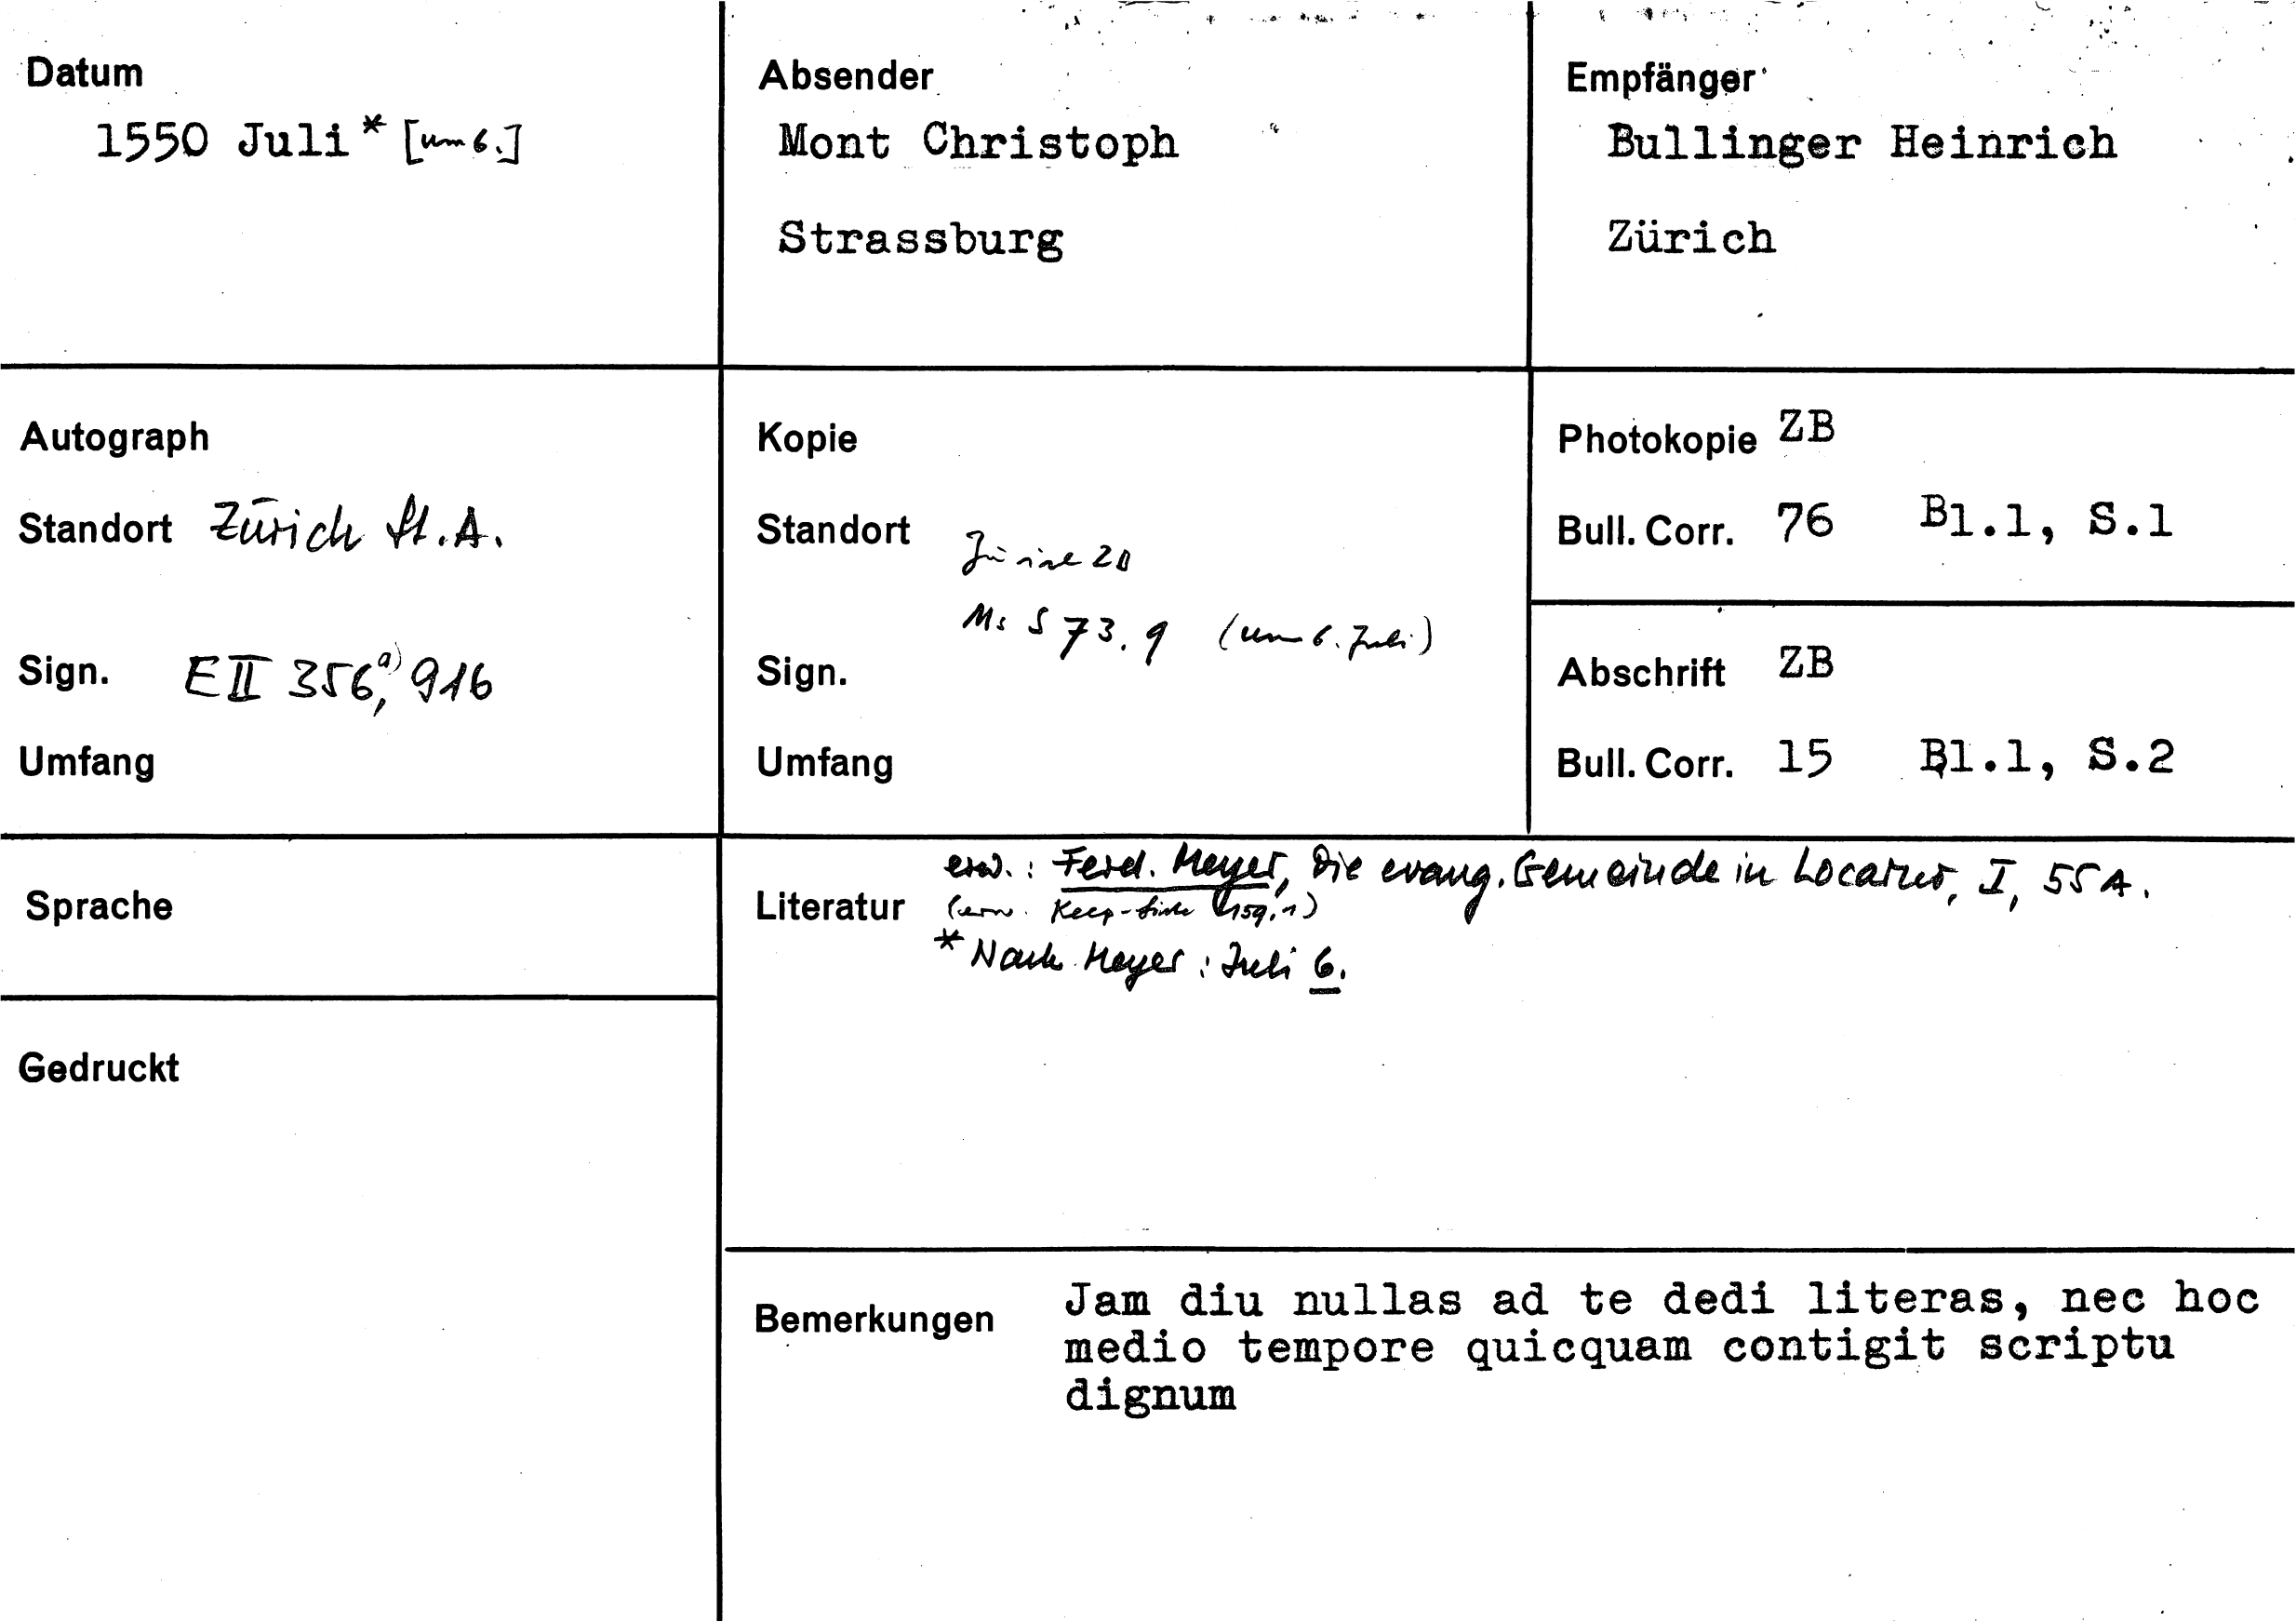 Datum
1550 Juli * [um 6.]
Absender
Mont Christoph
Strassburg
Empfänger
Bullinger Heinrich
Zürich
Autograph
Standort Zürich St.A.
Sign. E II 356 a), 916
Umfang
Kopie
Standort Zürich ZB
Ms S 73. 9 (um 6. Juli)
Sign.
Umfang
Photokopie ZB
Bull. Corr. 76 Bl.1, S.1
Abschrift ZB
Bull. Corr. 15 Bl.1, S.2
Sprache
Gedruckt
erw.: Ferd. Meyer, Die evang. Gemeinde in Locarno, I, 55 A.
Literatur (erw. 159, 1)
* Nach Meyer: Juli 6.
Bemerkungen
Jam diu nullas ad te dedi literas, nec hoc
medio tempore quicquam contigit scriptu
dignum